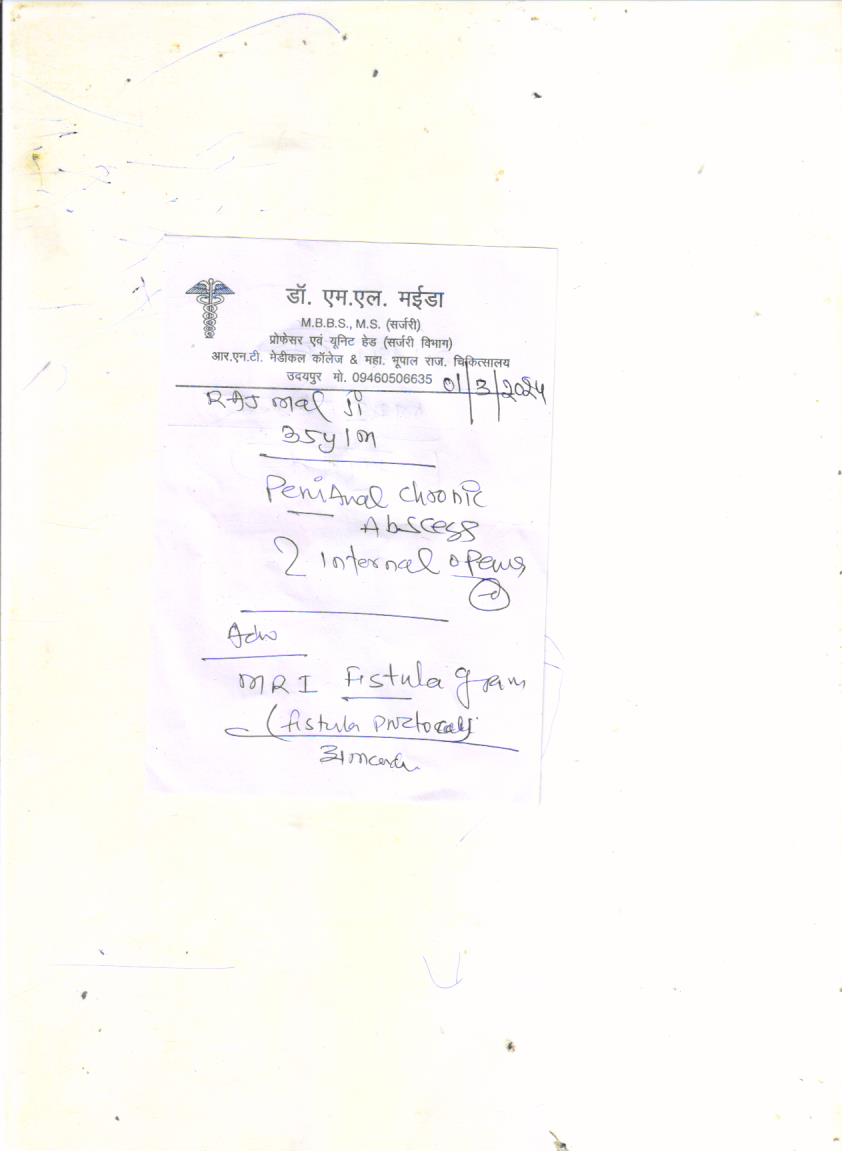 डॉ. एम.एल. मईडा
M.B.B.S., M.S. (सर्जरी)
प्रोफेसर एवं यूनिट हेड (सर्जरी विभाग)
आर.एन.टी. मेडीकल कॉलेज & महा. भूपाल राज. चिकित्सालय
उदयपुर मो. 09460506635 01/3/2024
RAJ mal जी
35y/m
PeriAnal chronic
Abscess
2 internal opens
Adv
MRI Fistula gram
(fistula